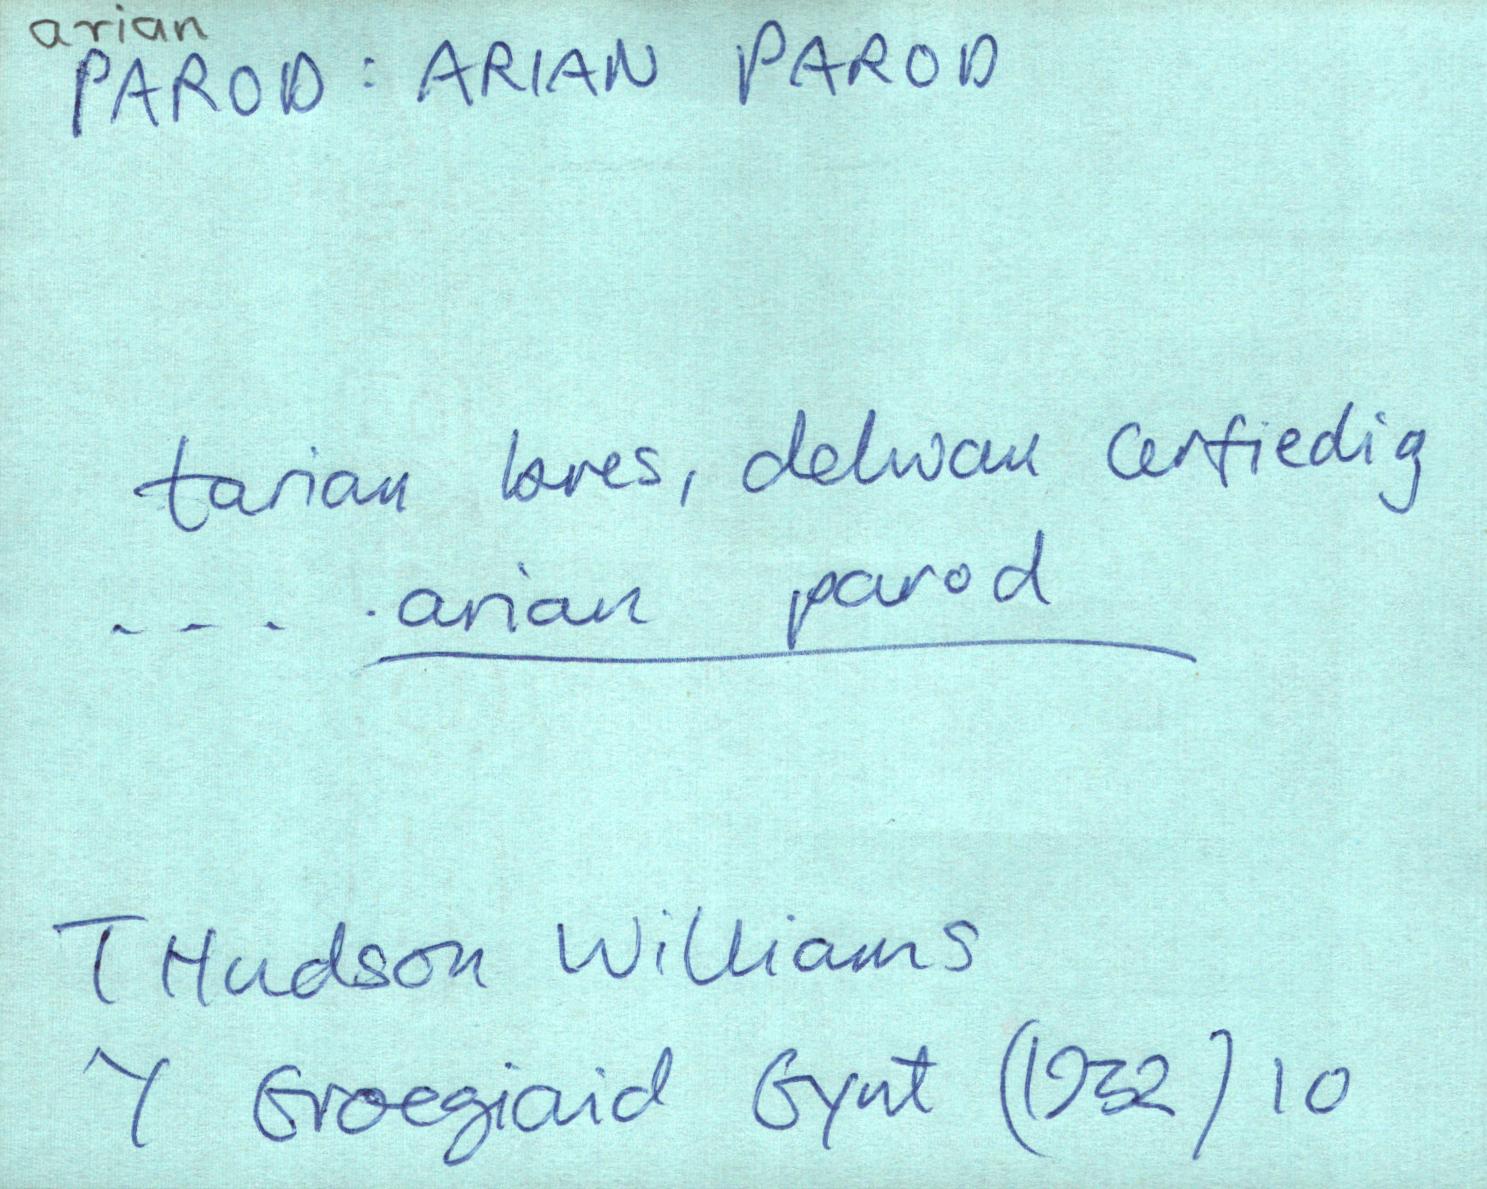 arian
PAROD: ARIAN PAROD
tarian bres, delwau cerfiedig
.... arian parod
T Hudson Williams
Y Groegiaid Gynt (1932) 10